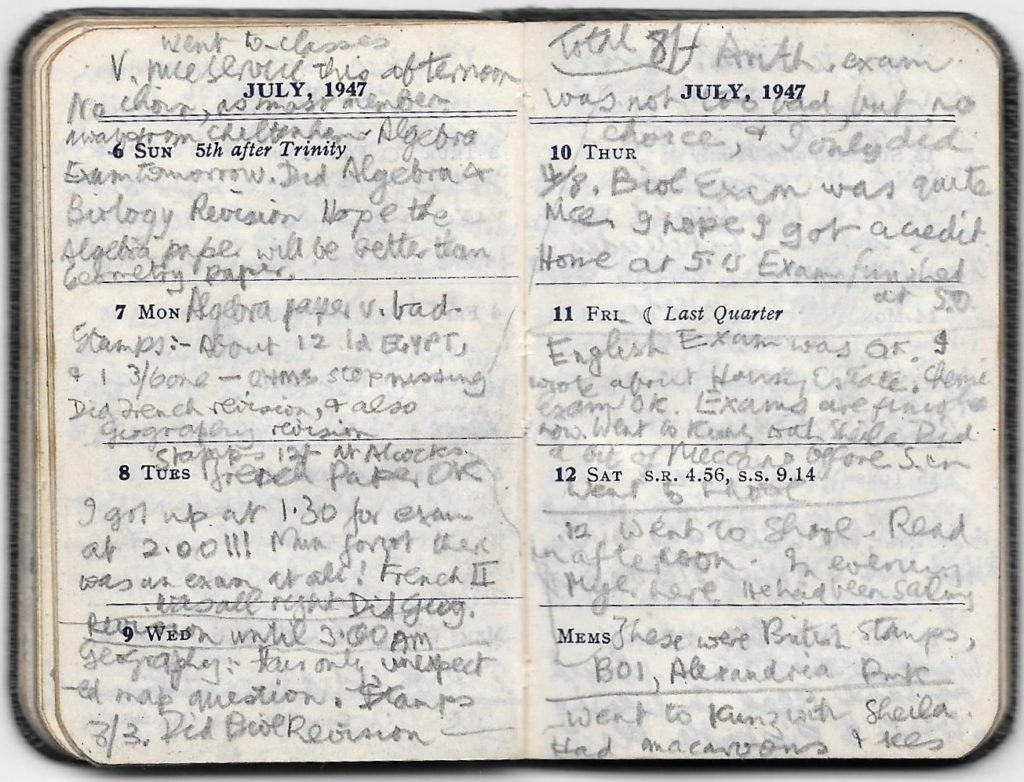 went to classes
V. nice service this afternoon
JULY, 1947
No choir, as most members
Cheltenham. Algebra
6 SUN 5th after Trinity
Exam tomorrow. Did Algebra &
Biology Revision Hope the
Algebra paper will be better than
Geometry paper.
7 MON Algebra paper v. bad.
Stamps:- About 12 1d EGYPT,
& 1 3/6 one — missing
Did French revision, & also
Geography revision
Stamps 12/- at Alcocks.
8 TUES French Paper OK
I got up at 1.30 for exam
at 2.00!!! Mum forgot there
was an exam at all! French II
was all right Did Geog.
Revision until 3.00 AM
9 WED
Geography:- Has only unexpect
-ed map question. Stamps
3/3. Did Biol Revision
Total 8/-
Arith. exam
JULY, 1947
was not too bad, but no
choice, & I only did
10 THUR
Biol Exam was quite
nice, I hope I got a credit
Home at 5.15 Exam finished
at 5.0
11 FRI ☾ Last Quarter
English Exam was OK. I
wrote about Housing Estate. Chemi
exam OK. Exams are finished
now. Went to Kunz with Sheila. Did
a bit of Meccano before
12 SAT S.R. 4.56, S.S. 9.14
Went to
12. Went to Shore. Read
in afternoon. In evening
here. He had been sailing
MEMS These were British Stamps,
BOI, Alexandria
Went to Kunz with Sheila.
Had macaroons & ices